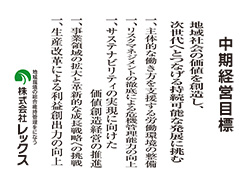 中期経営目標
地域社会の価値を創造し、
次世代へとつなげる持続可能な発展に挑む
一、主体的な働き方を支援する労働環境の整備
一、リスクマネジメントの徹底による危機管理能力の向上
一、サステナビリティの実現に向けた
価値創造経営の推進
一、事業領域の拡大と革新的な成長戦略への挑戦
一、生産改革による利益創出力の向上
地域環境の総合維持管理をになう
株式会社レックス